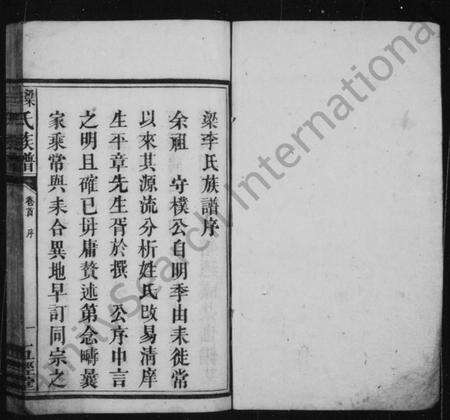 梁李氏族譜序
余祖 守樸公自明季由耒徙常
以來其源流分析姓氏改易清庠
生平章先生胥於撰 公序中言
之明且確已毋庸贅述第念疇曩
家乘常與耒合異地早訂同宗之
梁氏族譜 卷首 序 一
FamilySearch International